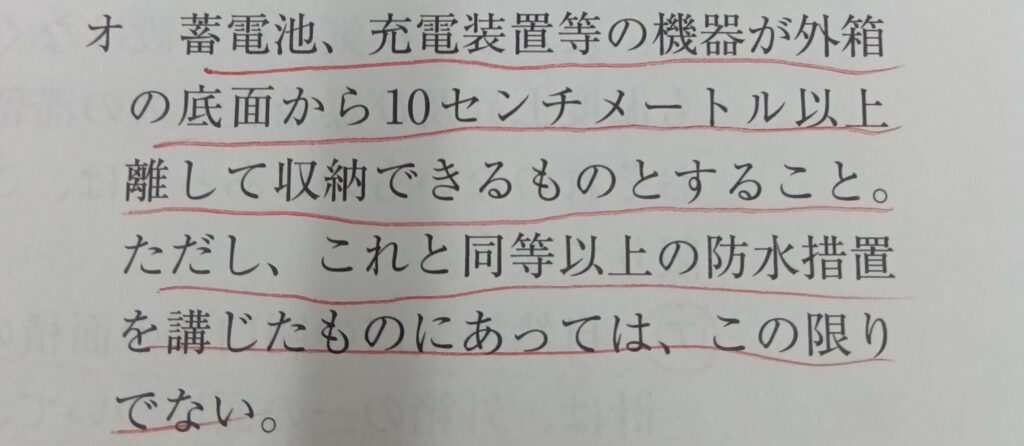 オ 蓄電池、充電装置等の機器が外箱
の底面から10センチメートル以上
離して収納できるものとすること。
ただし、これと同等以上の防水措置
を講じたものにあっては、この限り
でない。